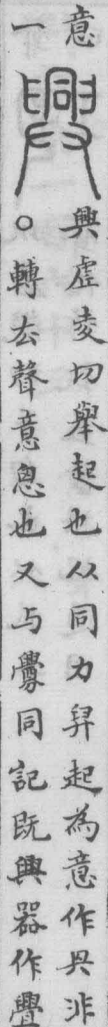 意興虛夌切舉起也从同力舁起為意作㒷非
一
○轉去聲意思也又与釁同記既興器作釁